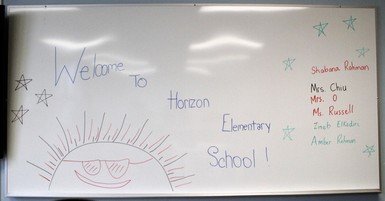 Welcome
To
Horizon
Elementary
School!
Shabana Rahman
Mrs. Chiu
Mrs. O
Ms. Russell
Amber Rahman